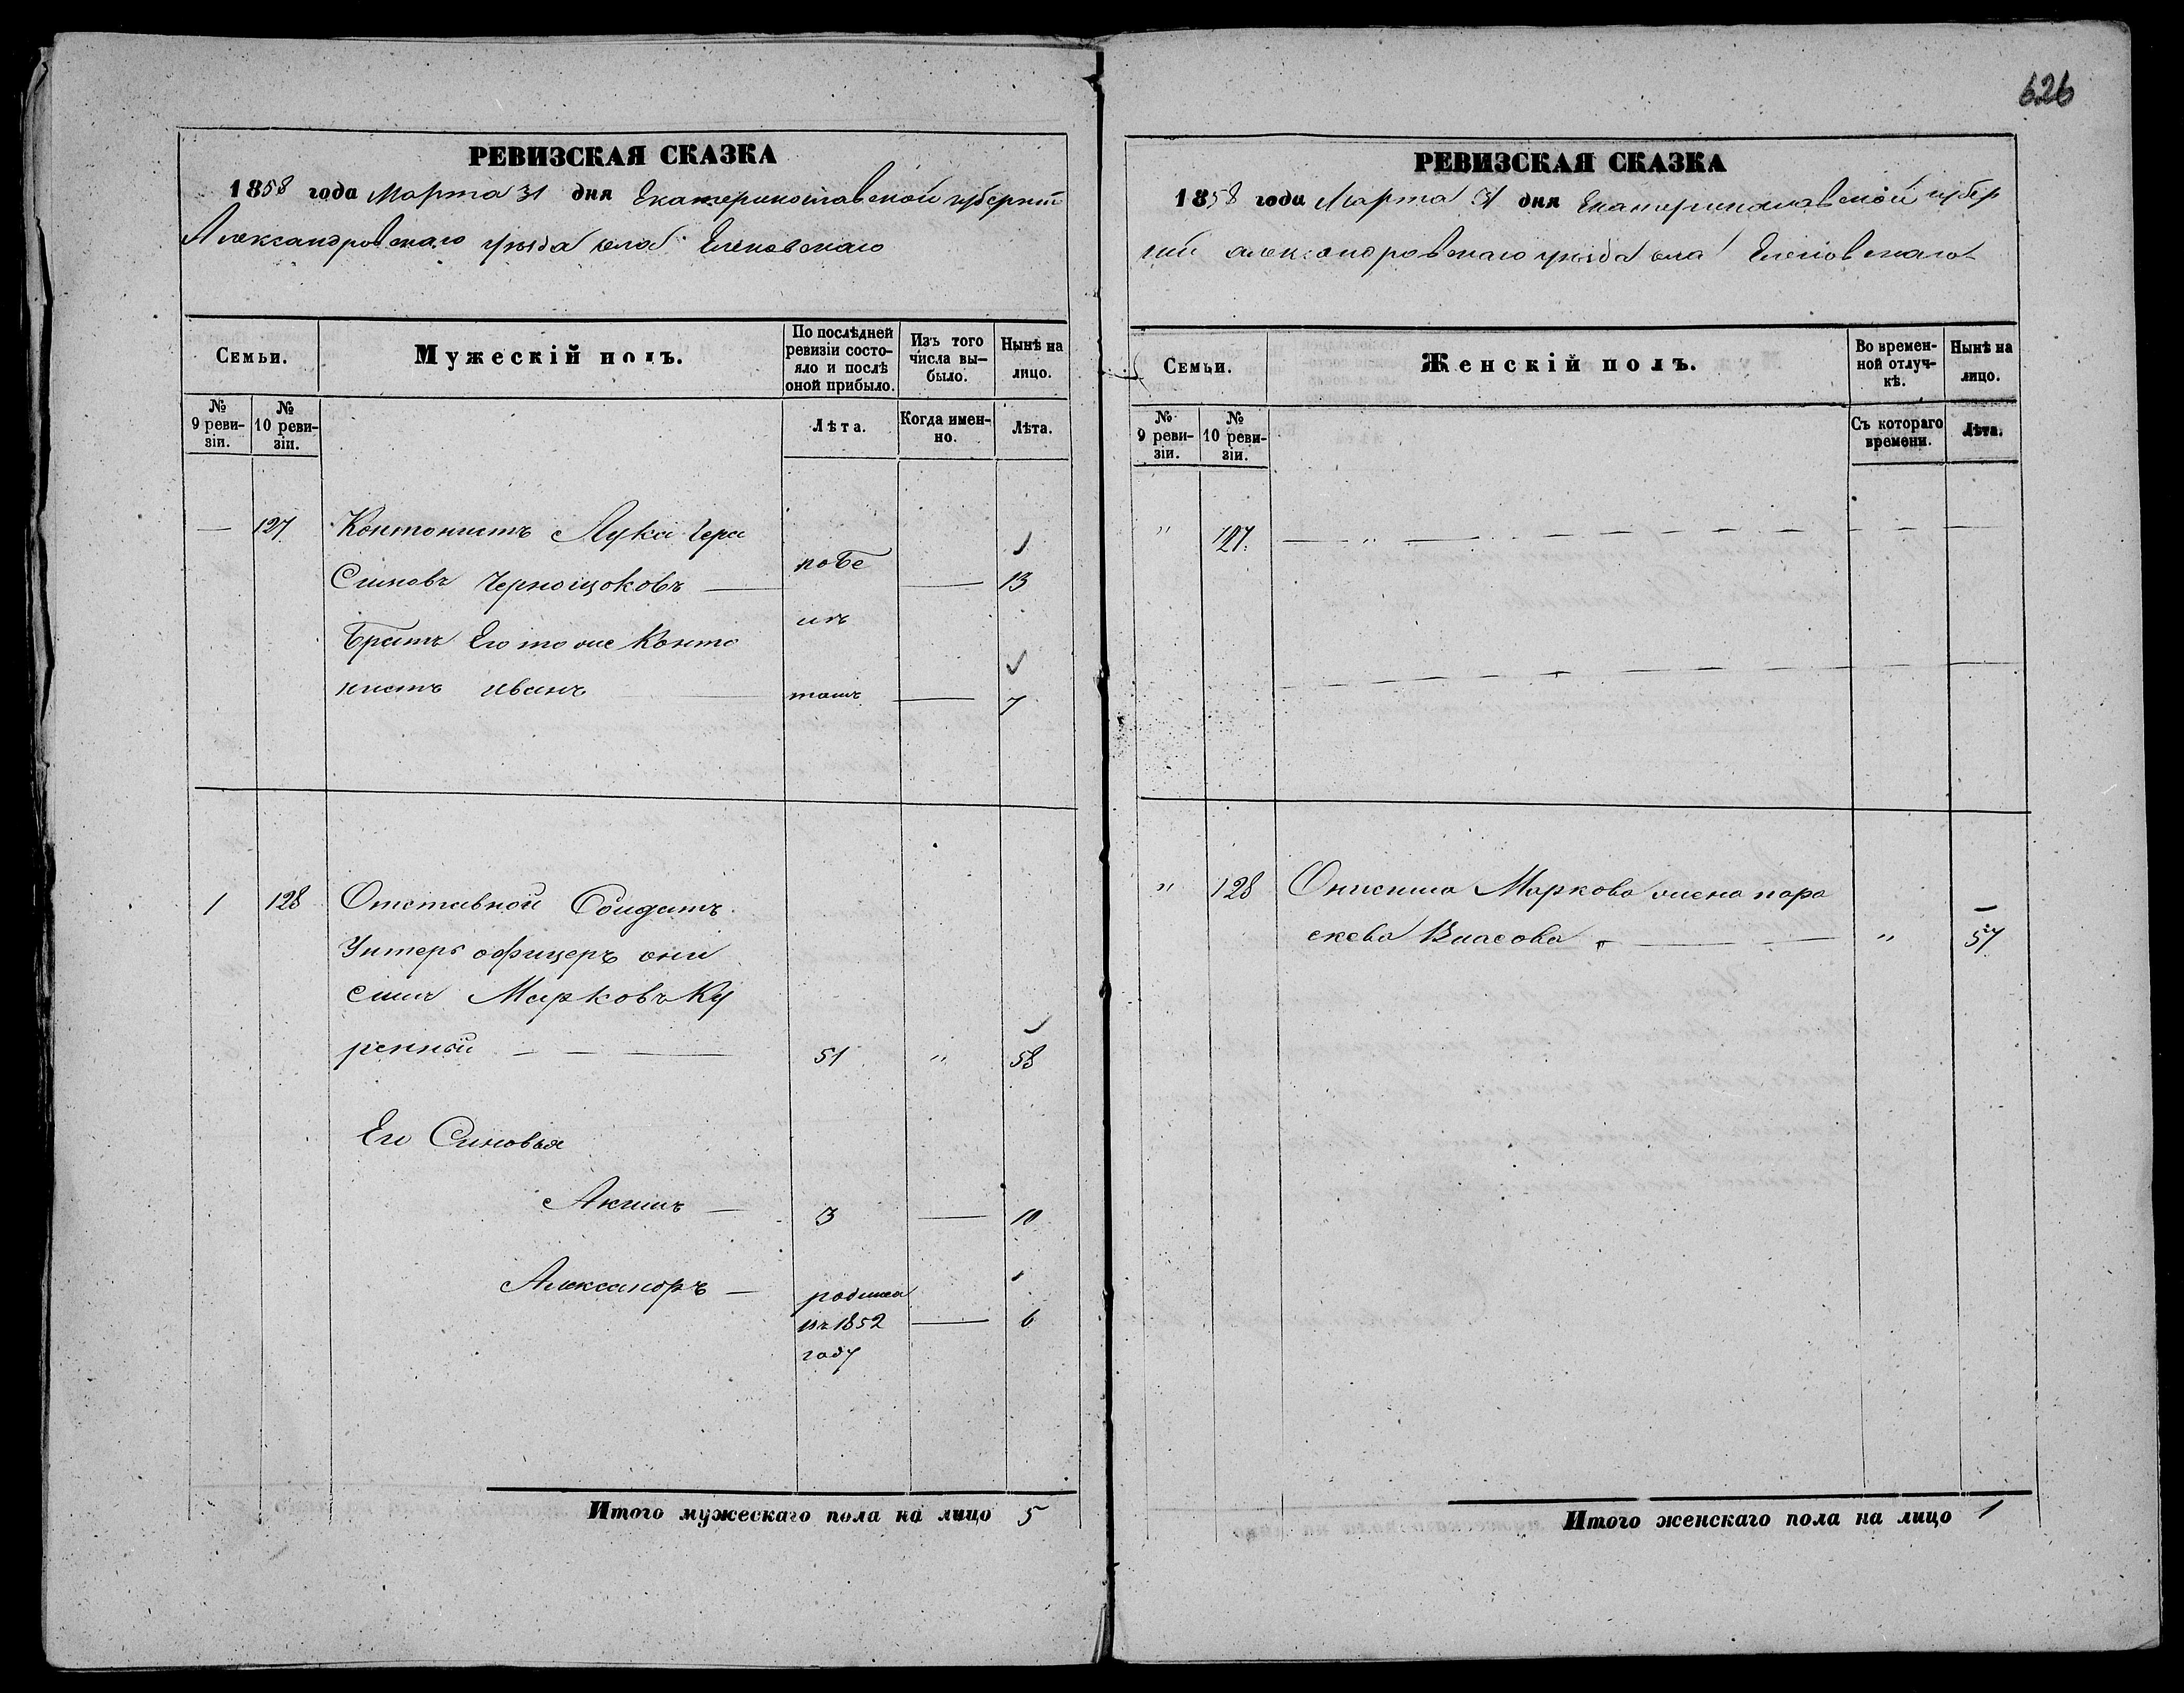 626
РЕВИЗСКАЯ СКАЗКА
1858 года Марта 31 дня Екатеринославской губернии
Александровскаго уезда села Еленовскаго
Семьи.
Мужескій полъ.
По послѣдней ревизіи состо-
яло и послѣ оной прибыло.
Изъ того числа вы-
было.
Нынѣ на лицо.
№ 9 реви-
зіи.
№ 10 реви-
зіи.
Лѣта.
Когда имен-
но.
Лѣта.
— 127 Кантонистъ Лука Гера
симовъ Чернощоковъ — 13
Братъ Его тоже Канто
нистъ иванъ — 7
1 128 Отставной Солдатъ
Унтеръ офицеръ они
симъ Марковъ Ку
ренной — 51 " 58
Его Синовья
Акимъ — 3 — 10
Александръ — родился
въ 1852 — 6
году
Итого мужескаго пола на лицо 5
РЕВИЗСКАЯ СКАЗКА
1858 года Марта 31 дня Екатеринославской губер
нии александровскаго уезда села Еленовскаго
Семьи.
Женскій полъ.
Во времен-
ной отлуч-
кѣ.
Нынѣ на лицо.
№ 9 реви-
зіи.
№ 10 реви-
зіи.
Съ котораго времени.
Лѣта.
" 127. — " —
" 128 Онисима Маркова жена пара
скева Власова — " 57
Итого женскаго пола на лицо 1